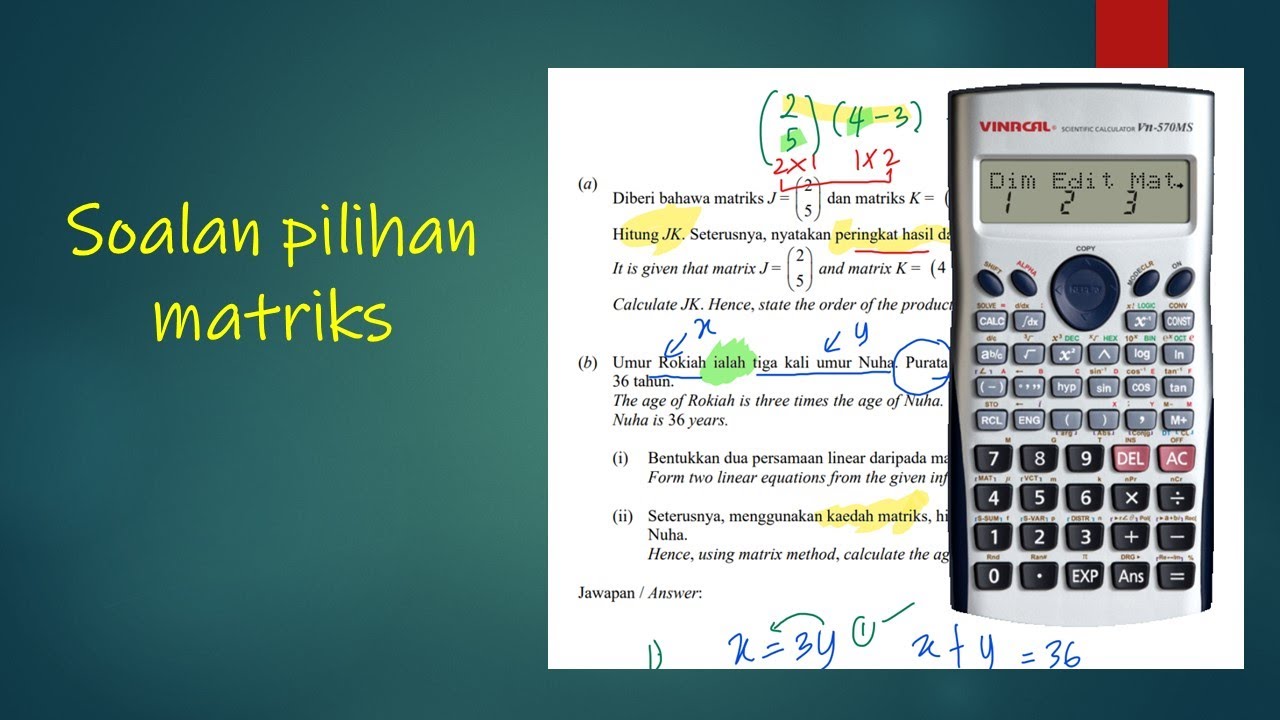 Soalan pilihan
matriks
(2 5) (4 -3)
2×1 1×2
(a)
Diberi bahawa matriks J = (2 5) dan matriks K = (
Hitung JK. Seterusnya, nyatakan peringkat hasil da
It is given that matrix J = (2 5) and matrix K = (4
Calculate JK. Hence, state the order of the product
x y
(b) Umur Rokiah ialah tiga kali umur Nuha. Purata
36 tahun.
The age of Rokiah is three times the age of Nuha.
Nuha is 36 years.
(i) Bentukkan dua persamaan linear daripada ma
Form two linear equations from the given inf
(ii) Seterusnya, menggunakan kaedah matriks, hi
Nuha.
Hence, using matrix method, calculate the ag
Jawapan / Answer:
x = 3y ① x + y = 36
VINACAL® SCIENTIFIC CALCULATOR Vn-570MS
Dim Edit Mat
1 2 3
COPY
SHIFT ALPHA REPLAY MODE CLR ON
SOLVE = d/dx : x! LOGIC CONV
CALC ∫dx x⁻¹ CONST
d/c ³√ x³ DEC ˣ√ HEX 10ˣ BIN eˣ OCT
ab/c √ x² ^ log ln
(−) °’” hyp sin cos tan
STO
RCL ENG ( ) , M+
INS OFF
7 8 9 DEL AC
MAT VCT nPr nCr
4 5 6 × ÷
S-SUM S-VAR DISTR Pol( Rec(
1 2 3 + −
Rnd Ran# π DRG▸ %
0 . EXP Ans =